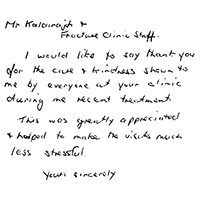 Mr Kalairajah &
Fracture Clinic Staff.
I would like to say thank you
for the care & kindness shown to
me by everyone at your clinic
during me recent treatment.
This was greatly appreciated
& helped to make the visits much
less stressful.
Yours sincerely